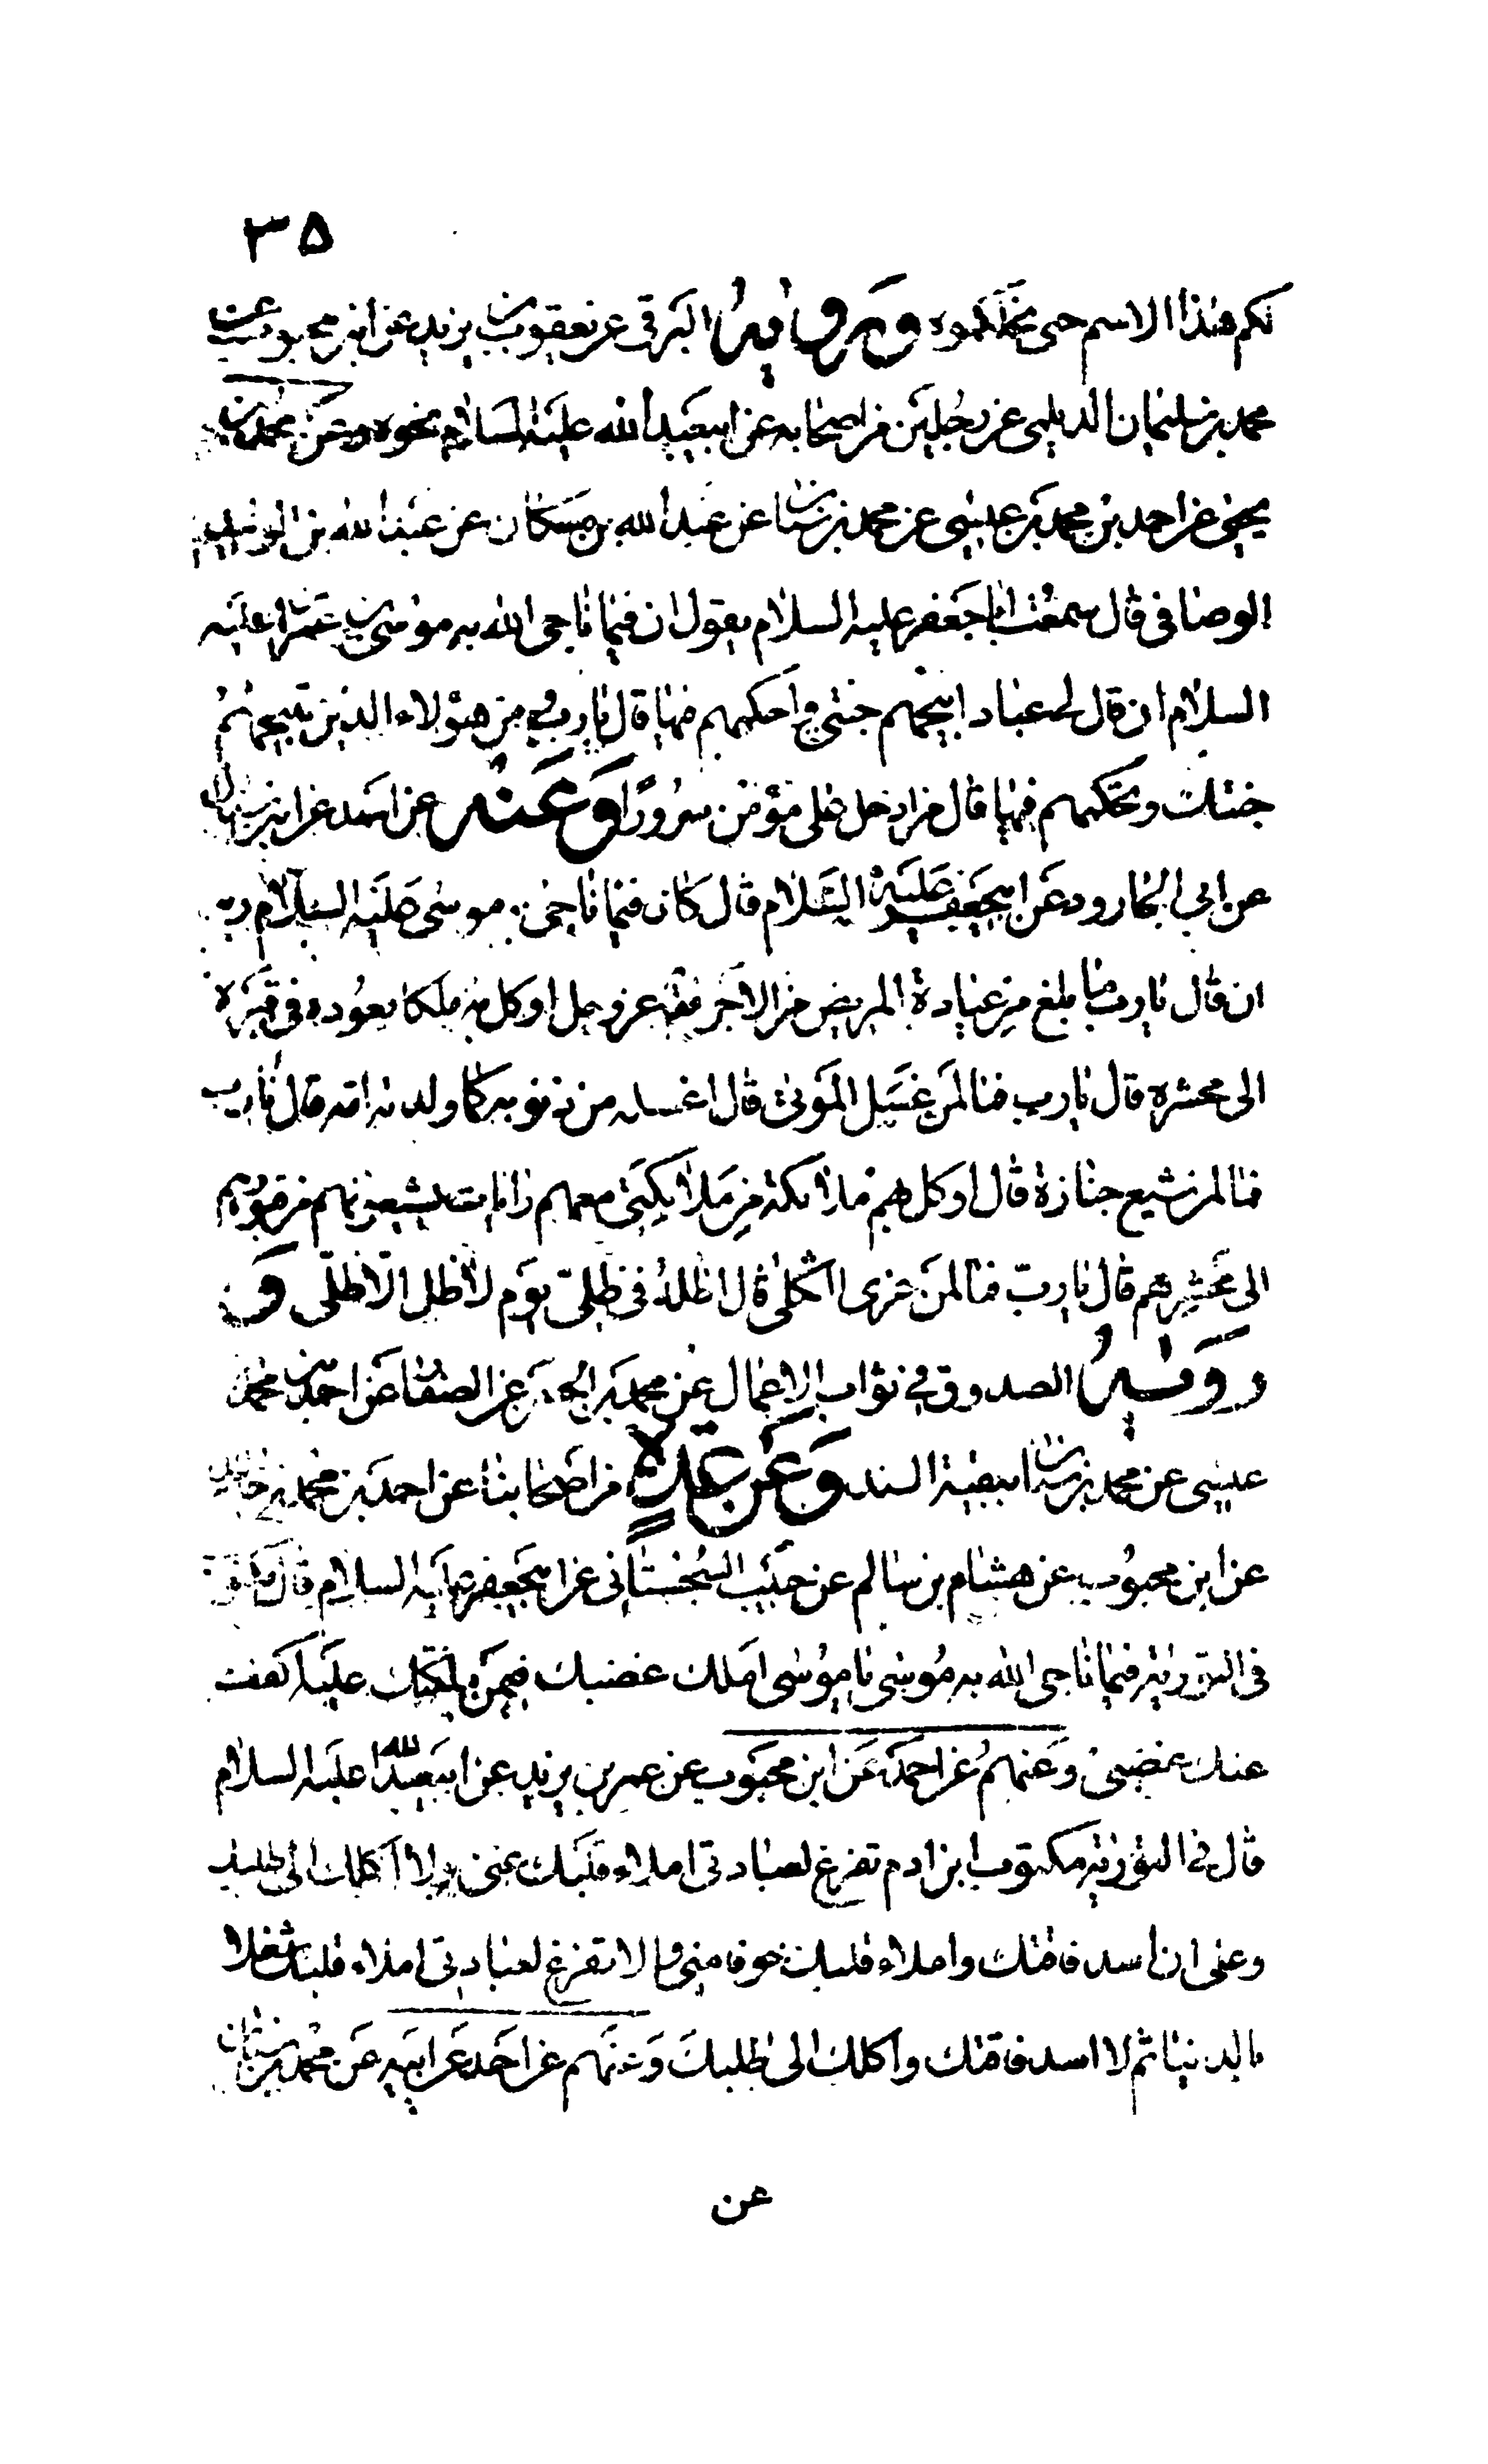 ٣٥
لكم هذا الاسم حتى نحلكموه ورواه البرقى عن يعقوب بن يزيد عن ابن محبوب عن
محمد بن سليمان الديلمى عن رجلين من اصحابه عن ابيعبد الله عليه السلام نحوه وعن محمد بن
يحيى عن احمد بن محمد بن عيسى عن محمد بن سنان عن عبد الله بن مسكان عن عبد الله بن الوليد
الوصافى قال سمعت ابا جعفر عليه السلام يقول ان فيما ناجى الله به موسى بن عمران عليه
السلام ان قال لى عباد ابيحهم جنتى واحكمهم فيها قال يا رب من هؤلاء الذين تبيحهم
جنتك وتحكمهم فيها قال من ادخل على مؤمن سرورا وعنه عن احمد عن ابن سنان
عن ابي الجارود عن ابيجعفر عليه السلام قال كان فيما ناجى به موسى عليه السلام ربه
ان قال يا رب ما بلغ من عيادة المريض من الاجر فقال عز وجل اوكل به ملكا يعوده فى قبره
الى محشره قال يا رب فما لمن غسل الموتى قال اغسله من ذنوبه كما ولدته امه قال يا رب
فما لمن شيع جنازة قال اوكل بهم ملائكة من ملائكتى معهم رايات يشيعونهم من قبورهم
الى محشرهم قال يا رب فما لمن عزى الثكلى قال اظله فى ظلى يوم لا ظل الا ظلى و
رواه الصدوق في ثواب الاعمال عن محمد بن الحسن عن الصفار عن احمد بن محمد
عيسى عن محمد بن سنان ببقية السند وعن عدة من اصحابنا عن احمد بن محمد بن خالد
عن ابن محبوب عن هشام بن سالم عن حبيب السجستانى عن ابيجعفر عليه السلام قال مكتوب
فى التورية فيما ناجى الله به موسى يا موسى املك غضبك فيمن ملكتك عليه اكف
عنك غضبى وعنهم عن احمد عن ابن محبوب عن عمر بن يزيد عن ابيعبد الله عليه السلام
قال فى التورية مكتوب ابن ادم تفرغ لعبادتى املاء قلبك غنى ولا اكلك الى طلبك
وعلى ان اسد فاقتك واملاء قلبك خوفا منى والا تفرغ لعبادتى املاء قلبك شغلا
بالدنيا ثم لا اسد فاقتك واكلك الى طلبك وعنهم عن احمد عن ابيه عن محمد بن سنان
عن